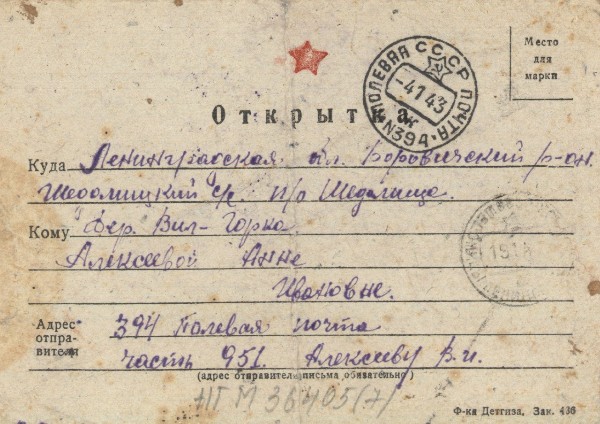 Место
для
марки
СССР
ПОЛЕВАЯ ПОЧТА
-4 1 43
N394
Открытка
Куда Ленинградская обл. Боровичский р-он.
Шедомицкий с/с. п/о Шедомицо.
Дер. Вил-Горка
Кому Алексеевой Анне
Ивановне.
Адрес отправителя
394 Полевая почта
часть 951. Алексееву В.И.
(адрес отправителя письма обязательно)
НГМ 36405(7)
Ф-ка Детгиза. Зак. 436